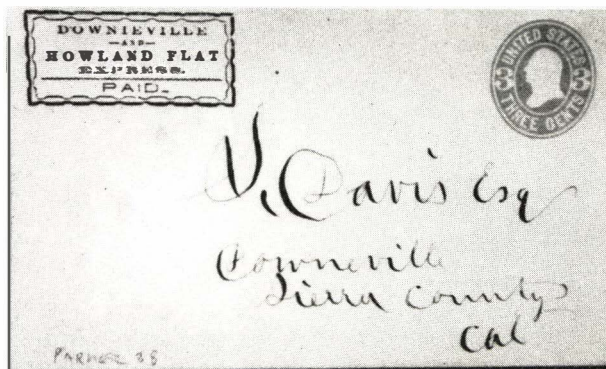 DOWNIEVILLE
—AND—
HOWLAND FLAT
EXPRESS.
PAID.
UNITED STATES
THREE CENTS
3 3
V. Davis Esq
Downeville
Sierra County
Cal
PARKER 38